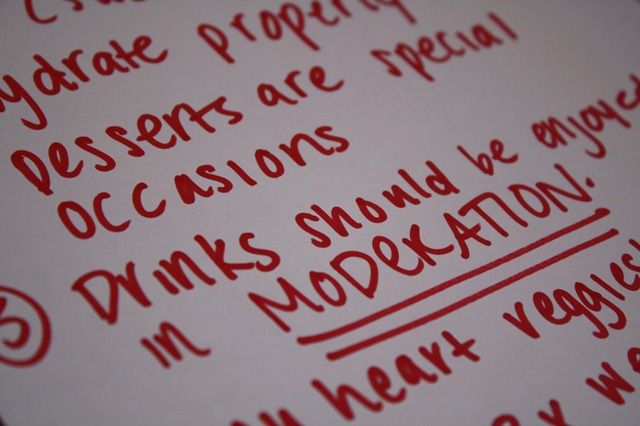 hydrate properly
Desserts are special
occasions
3 Drinks should be enjoyed
in MODERATION.
heart veggies